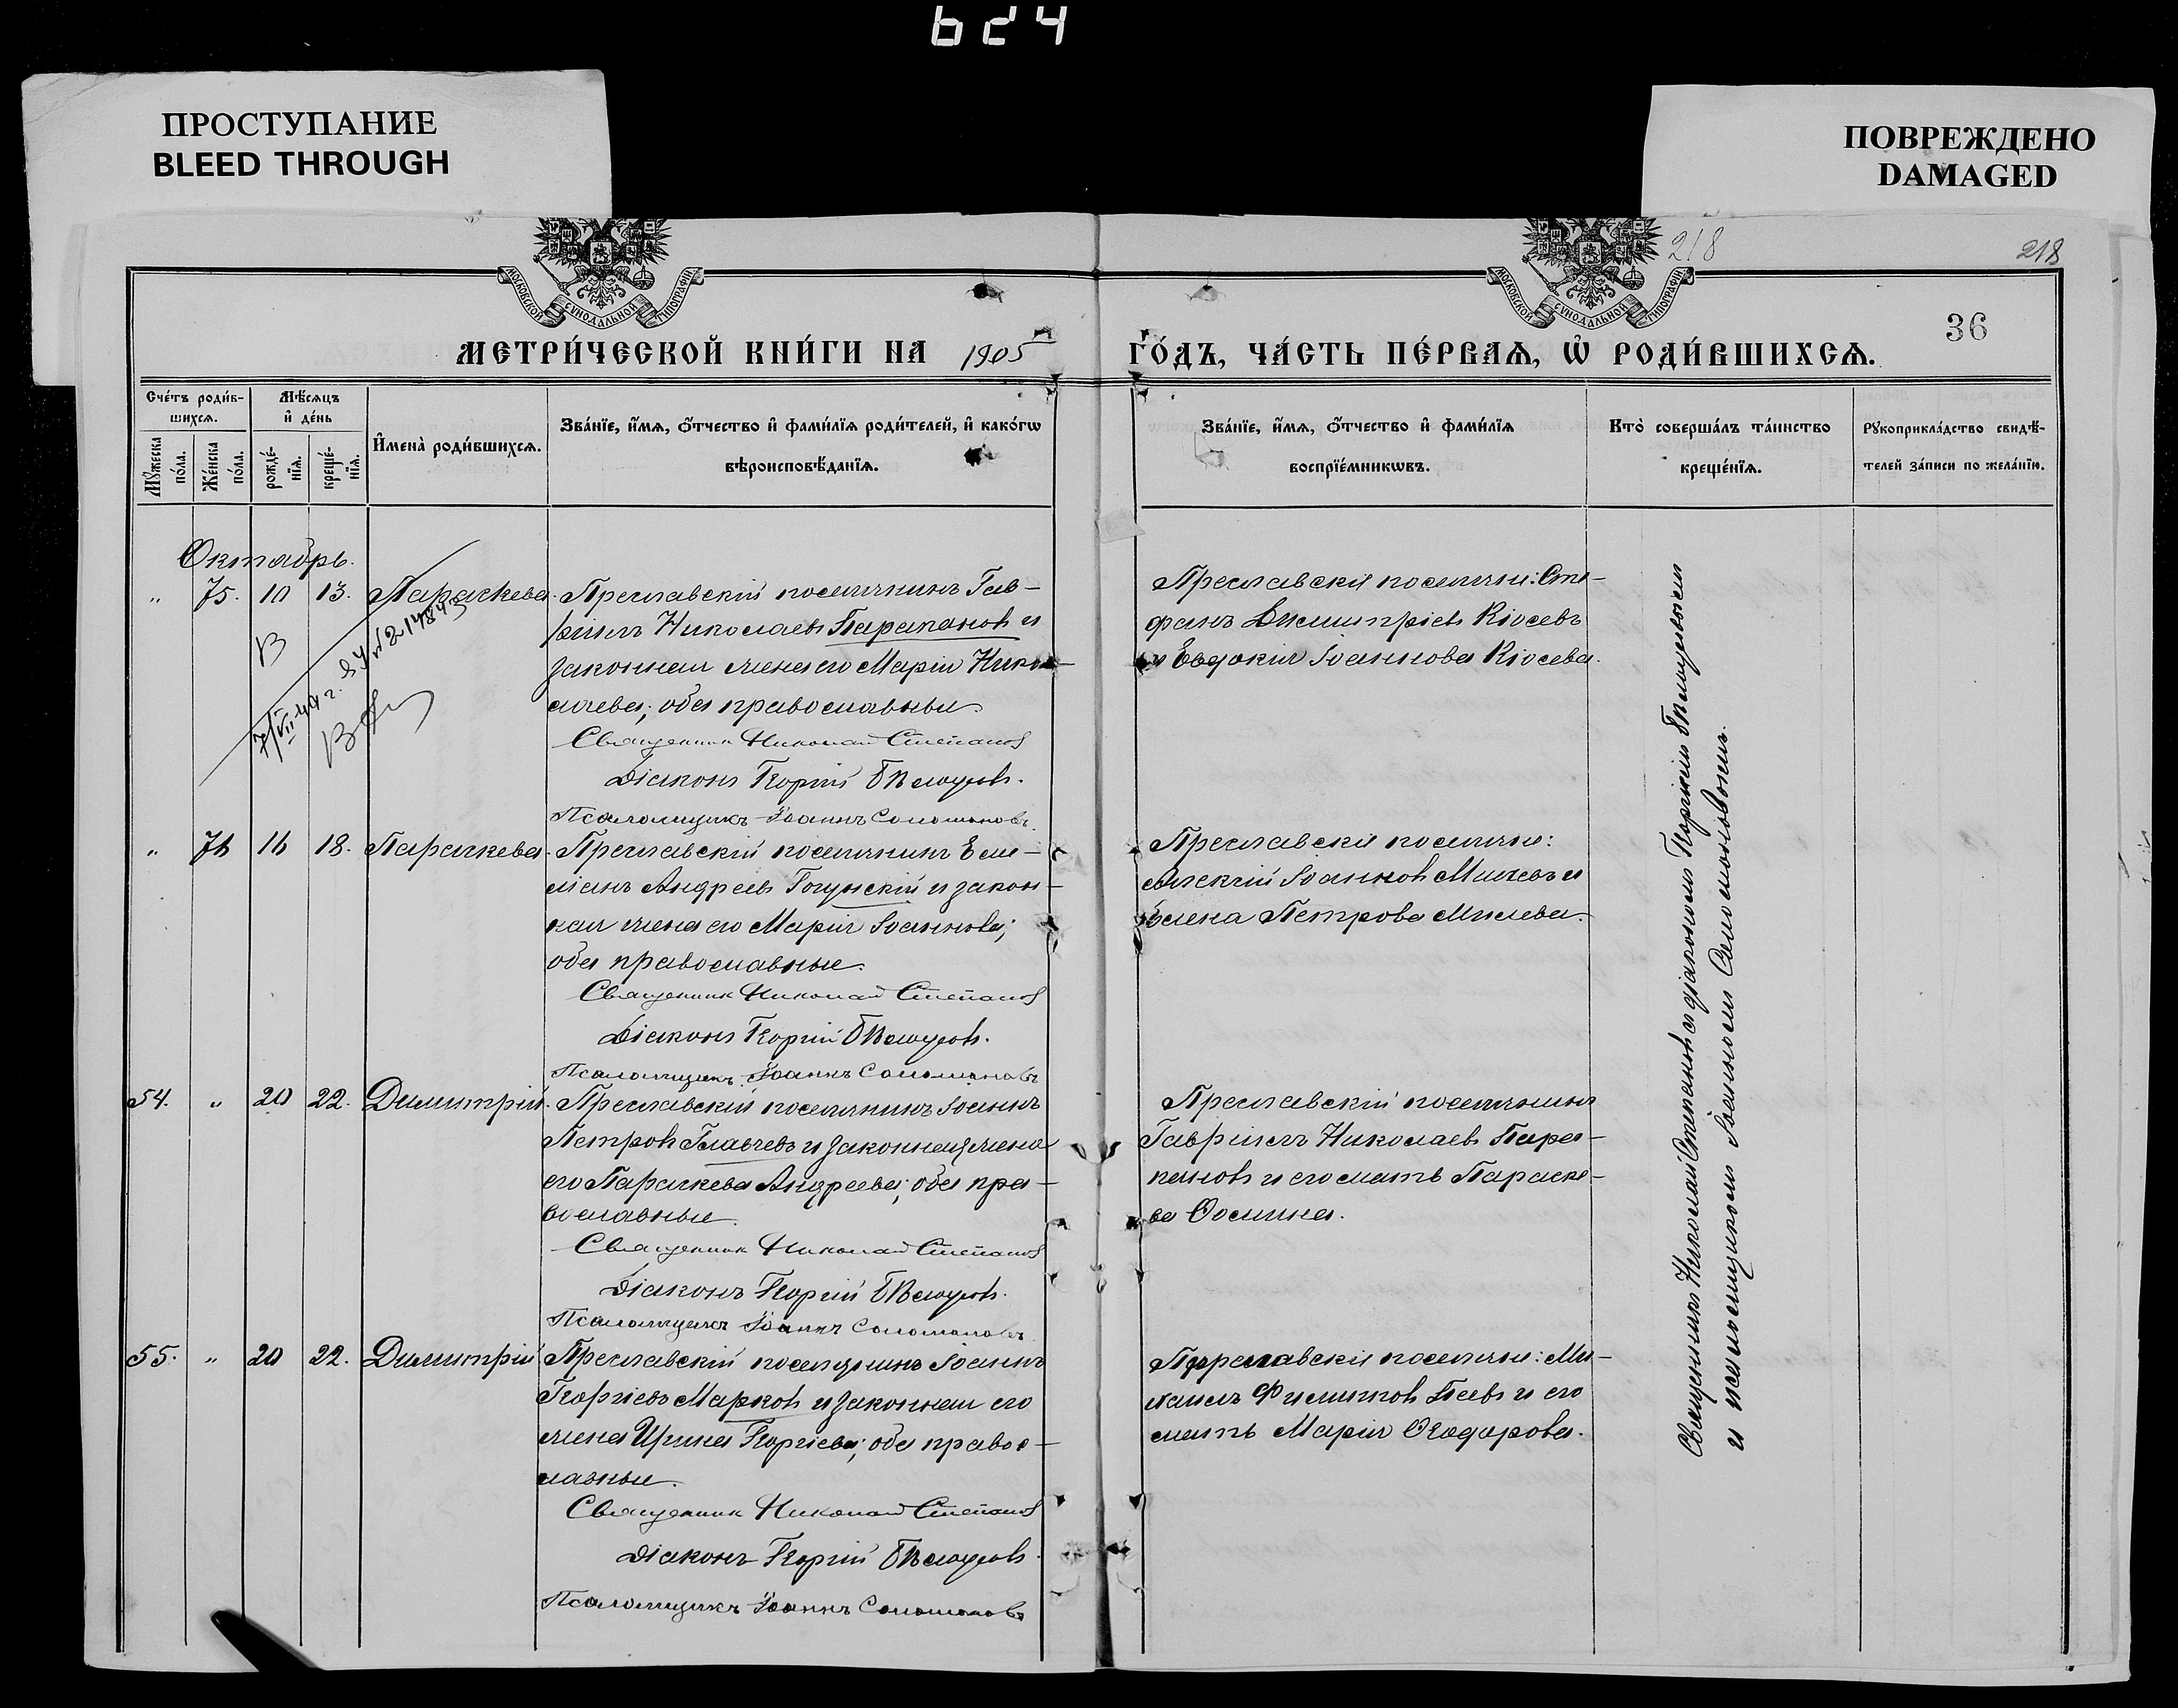 624
ПРОСТУПАНИЕ
BLEED THROUGH
ПОВРЕЖДЕНО
DAMAGED
МОСКОВСКОЙ СѴНОДАЛЬНОЙ ТИПОГРАФІИ
МОСКОВСКОЙ СѴНОДАЛЬНОЙ ТИПОГРАФІИ
218
218
36
МЕТРИ́ЧЕСКОЙ КНИ́ГИ НА 1905
ГО́ДЪ, ЧА́СТЬ ПЕ́РВАѦ, Ѽ РОДИ́ВШИХСѦ.
Сче́тъ роди́в-
шихсѧ.
Мꙋ́жеска по́ла.
Же́нска по́ла.
Мѣ́сѧцъ
и҆ де́нь
рожде́-
нїѧ.
креще́-
нїѧ.
И҆мена̀ роди́вшихсѧ.
Зва́нїе, и҆́мѧ, ѻ҆́тчество и҆ фами́лїѧ роди́телей, и҆ како́гѡ
вѣроисповѣ́данїѧ.
Зва́нїе, и҆́мѧ, ѻ҆́тчество и҆ фами́лїѧ
воспрїе́мникѡвъ.
Кто̀ соверша́лъ та́инство
креще́нїѧ.
Рꙋкоприкла́дство свидѣ́-
телей за́писи по жела́нїю.
Октябрь.
" 75. 10 13. Параскева. Преславскій поселянинъ Гав-
ріилъ Николаевъ Парапановъ и
законная жена его Марія Нико-
лаева; оба православные.
Священник Николай Степанов
Діаконъ Георгій Бѣлоусовъ.
Псаломщикъ Іоаннъ Соломоновъ.
Преславскіе поселяне: Сте-
фанъ Димитріевъ Кіосевъ
и Евдокія Іоаннова Кіосева.
" 76 16 18. Параскева. Преславскій поселянинъ Еми-
ліанъ Андреевъ Гогунскій и закон-
ная жена его Марія Іоаннова;
оба православные.
Священник Николай Степанов
Діаконъ Георгій Бѣлоусовъ.
Псаломщикъ Іоаннъ Соломоновъ
Преславскіе поселяне:
Алексій Іоанновъ Милевъ и
Елена Петрова Милева.
54. " 20 22. Димитрій. Преславскій поселянинъ Іоаннъ
Петровъ Главчевъ и законная жена
его Параскева Андреева; оба пра-
вославные.
Священник Николай Степанов
Діаконъ Георгій Бѣлоусовъ.
Псаломщикъ Іоаннъ Соломоновъ.
Преславскій поселянинъ
Гавріилъ Николаевъ Пара-
пановъ и его мать Параске-
ва Ѳомина.
55. " 20 22. Димитрій Преславскій поселянинъ Іоаннъ
Георгіевъ Марковъ и законная его
жена Ирина Георгіева; оба правос-
лавные.
Священник Николай Степанов
Діаконъ Георгій Бѣлоусовъ.
Псаломщикъ Іоаннъ Соломоновъ
Преславскіе поселяне: Ми-
хаилъ Филиповъ Паевъ и его
мать Марія Ѳеодорова.
Священникъ Николай Степановъ съ діакономъ Георгіемъ Бѣлоусовымъ
и псаломщикомъ Іоанномъ Соломоновымъ.